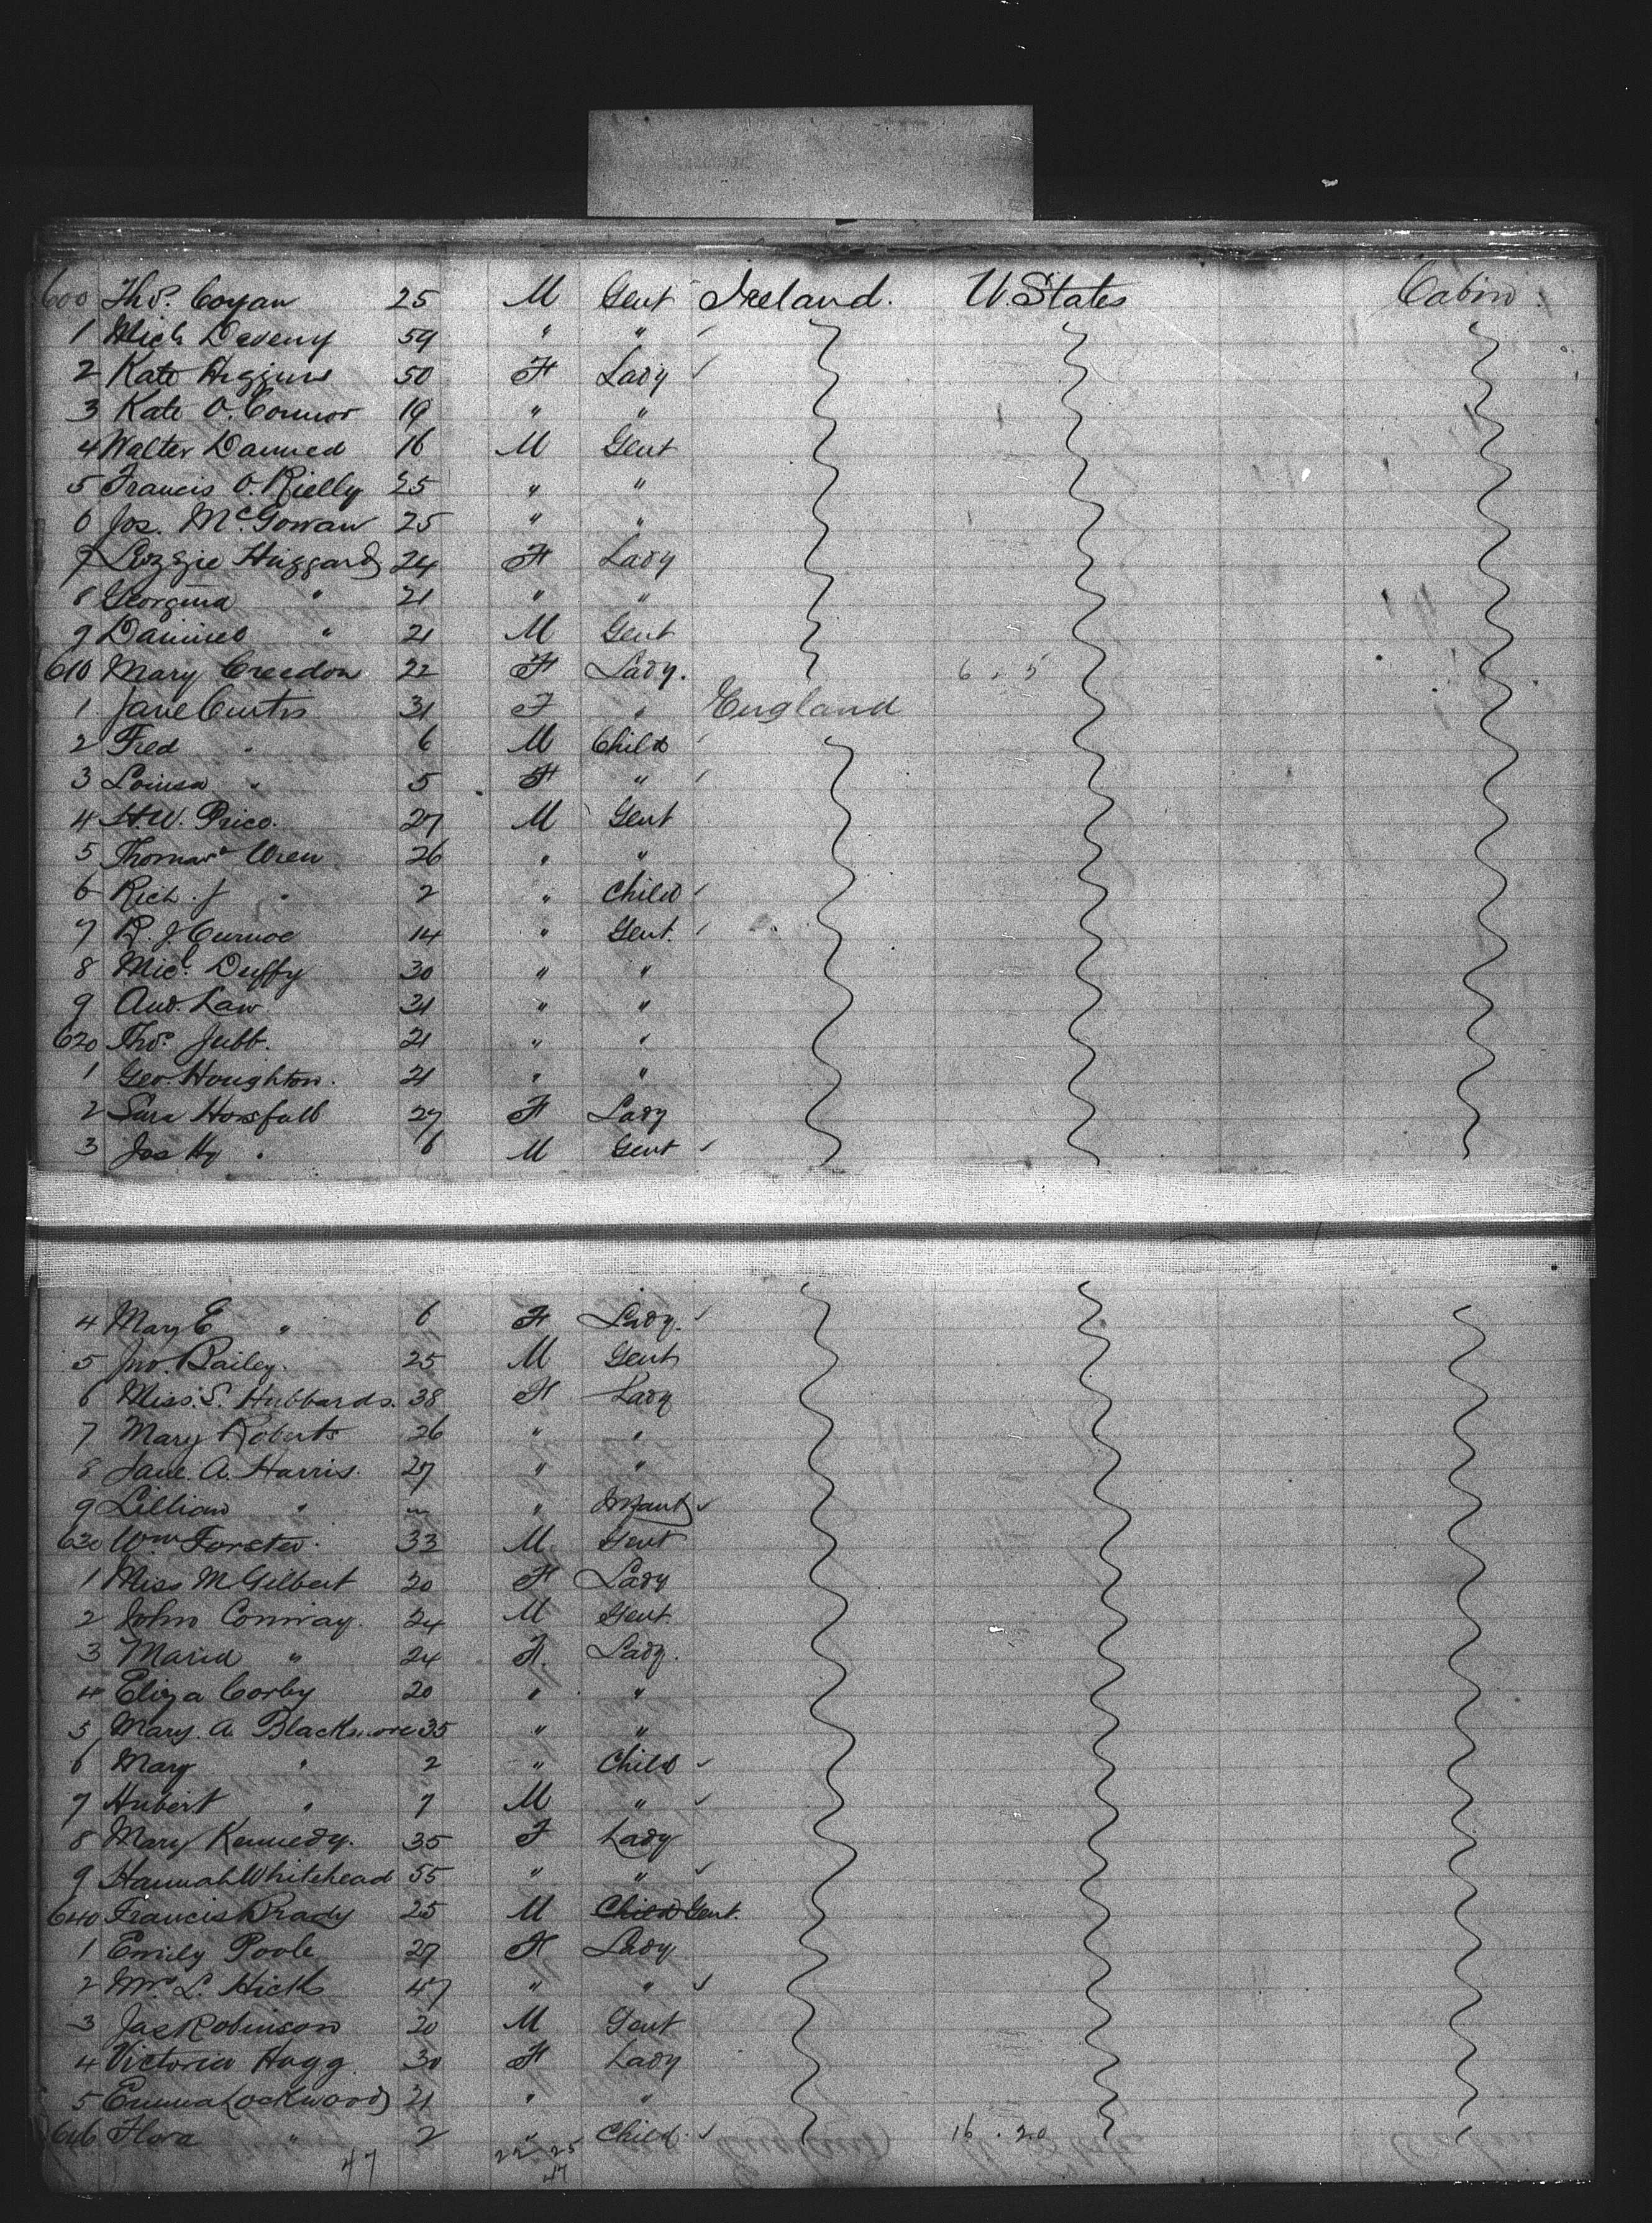 600 Thos. Coyan 25 M Gent Ireland. U States Cabin
1 Mich Deveny 59 " "
2 Kate Higgins 50 F Lady
3 Kate O. Connor 19 " "
4 Walter 16 M Gent
5 Francis O. Rielly 25 " "
6 Jos. McGowan 25 " "
7 Lizzie Huggard 24 F Lady
8 Georgina " 21 " "
9 " 21 M Gent
610 Mary Creedon 22 F Lady. 6 . 5
1 Jane Curtis 31 F " England
2 Fred " 6 M Child
3 Louisa " 5 F "
4 H.W. Price. 27 M Gent
5 Thomas Uren 26 " "
6 Rich. J " 2 " Child
7 R. J. Curnoe 14 " Gent.
8 Micl. Duffy 30 " "
9 And. Law 31 " "
620 Thos. Jubb. 21 " "
1 Geo. Houghton. 21 " "
2 Sara Horsfall 27 F Lady
3 Jos Hy " 6 M Gent
4 Mary E " 6 F Lady.
5 Jno. Bailey. 25 M Gent
6 Miss. S. Hubbards. 38 F Lady
7 Mary Roberts 26 " "
8 Jane. A. Harris. 27 " "
9 Lillian " " Infant
630 Wm Forster. 33 M. Gent
1 Miss M Gilbert 20 F Lady
2 John Conway. 24 M Gent.
3 Maria " 24 F. Lady.
4 Eliza Corby 20 " "
5 Mary. A Blackmore 35 " "
6 Mary " 2 " Child
7 Hubert " 7 M "
8 Mary Kennedy. 35 F Lady
9 Hannah Whitehead 55 " "
640 Francis Brady 25 M Child Gent.
1 Emily Poole 27 F Lady
2 Mrs. L. Hicks 47 " "
3 Jas Robinson 20 M Gent
4 Victoria Hagg 30 F Lady
5 Emma Lockwood 21 " "
646 Flora " 2 " Child. 16 . 20
47 22 25
47